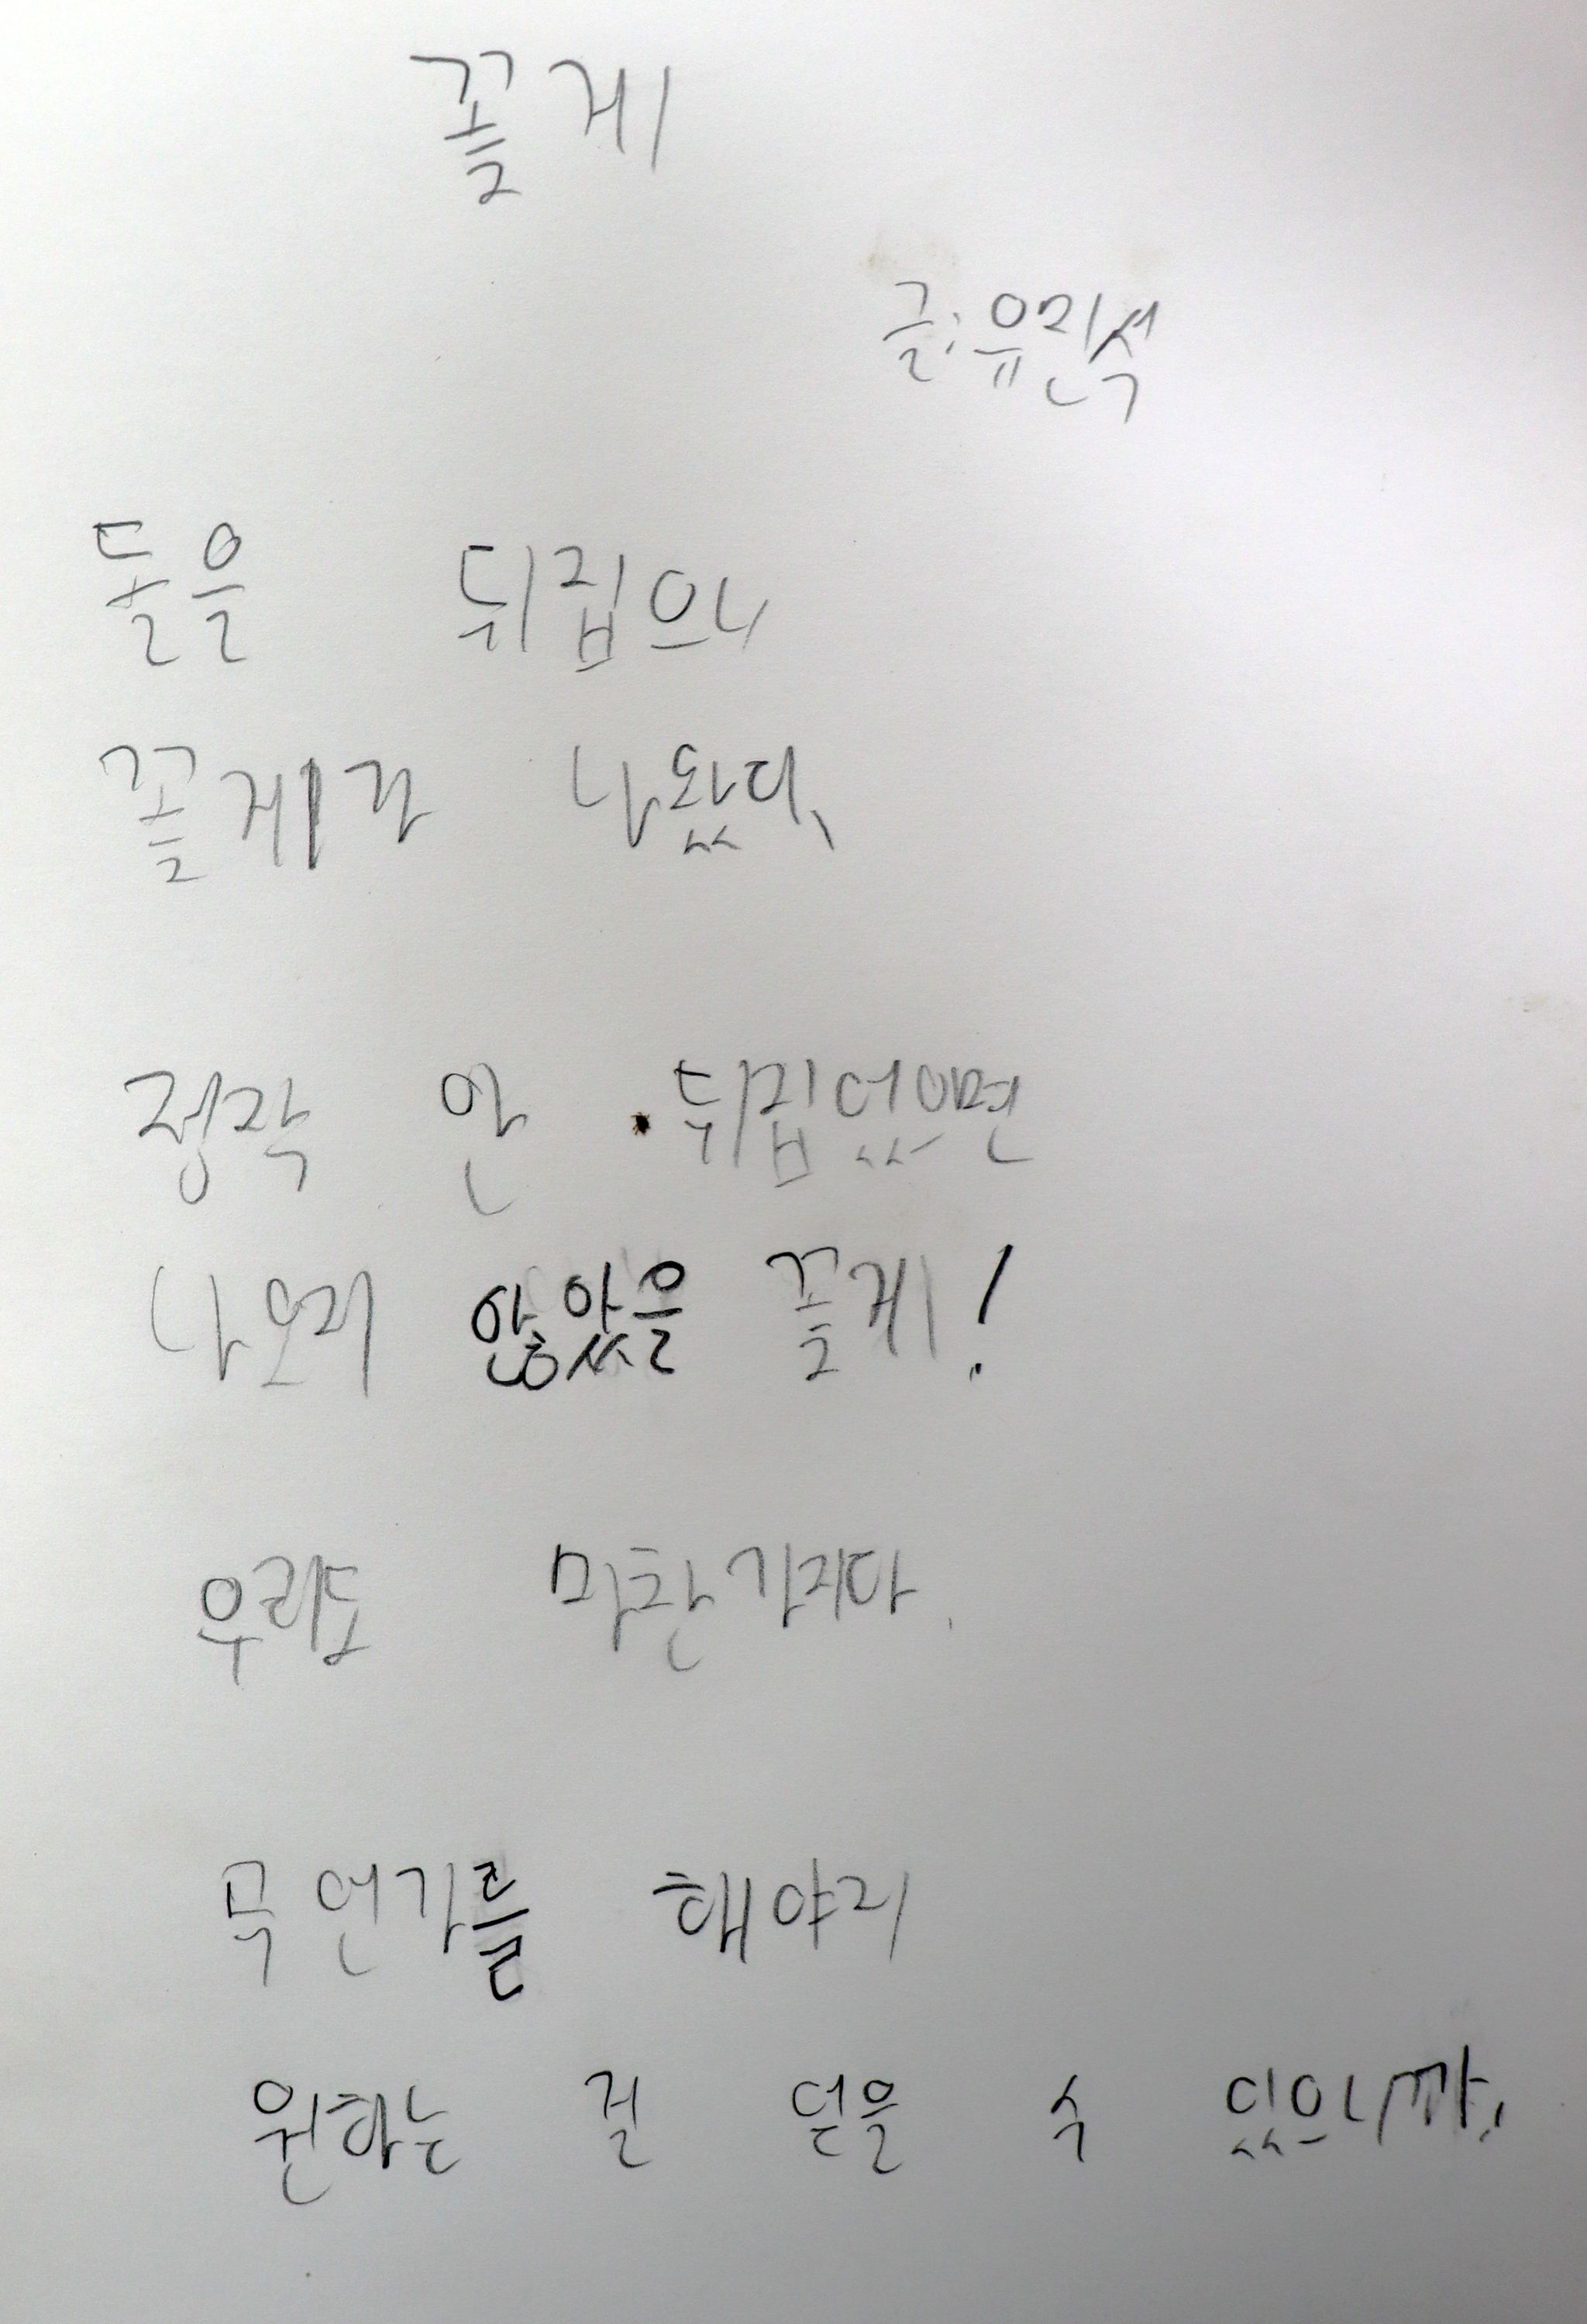 꽃게
글: 유민석
돌을 뒤집으니
꽃게가 나왔다.
정작 안 뒤집었으면
나오지 않았을 꽃게!
우리도 마찬가지다.
무언가를 해야지
원하는 걸 얻을 수 있으니까.